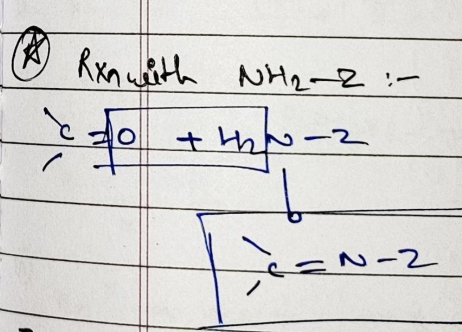 Rxn with NH2-Z :-
C=O + H2N-Z
C=N-Z